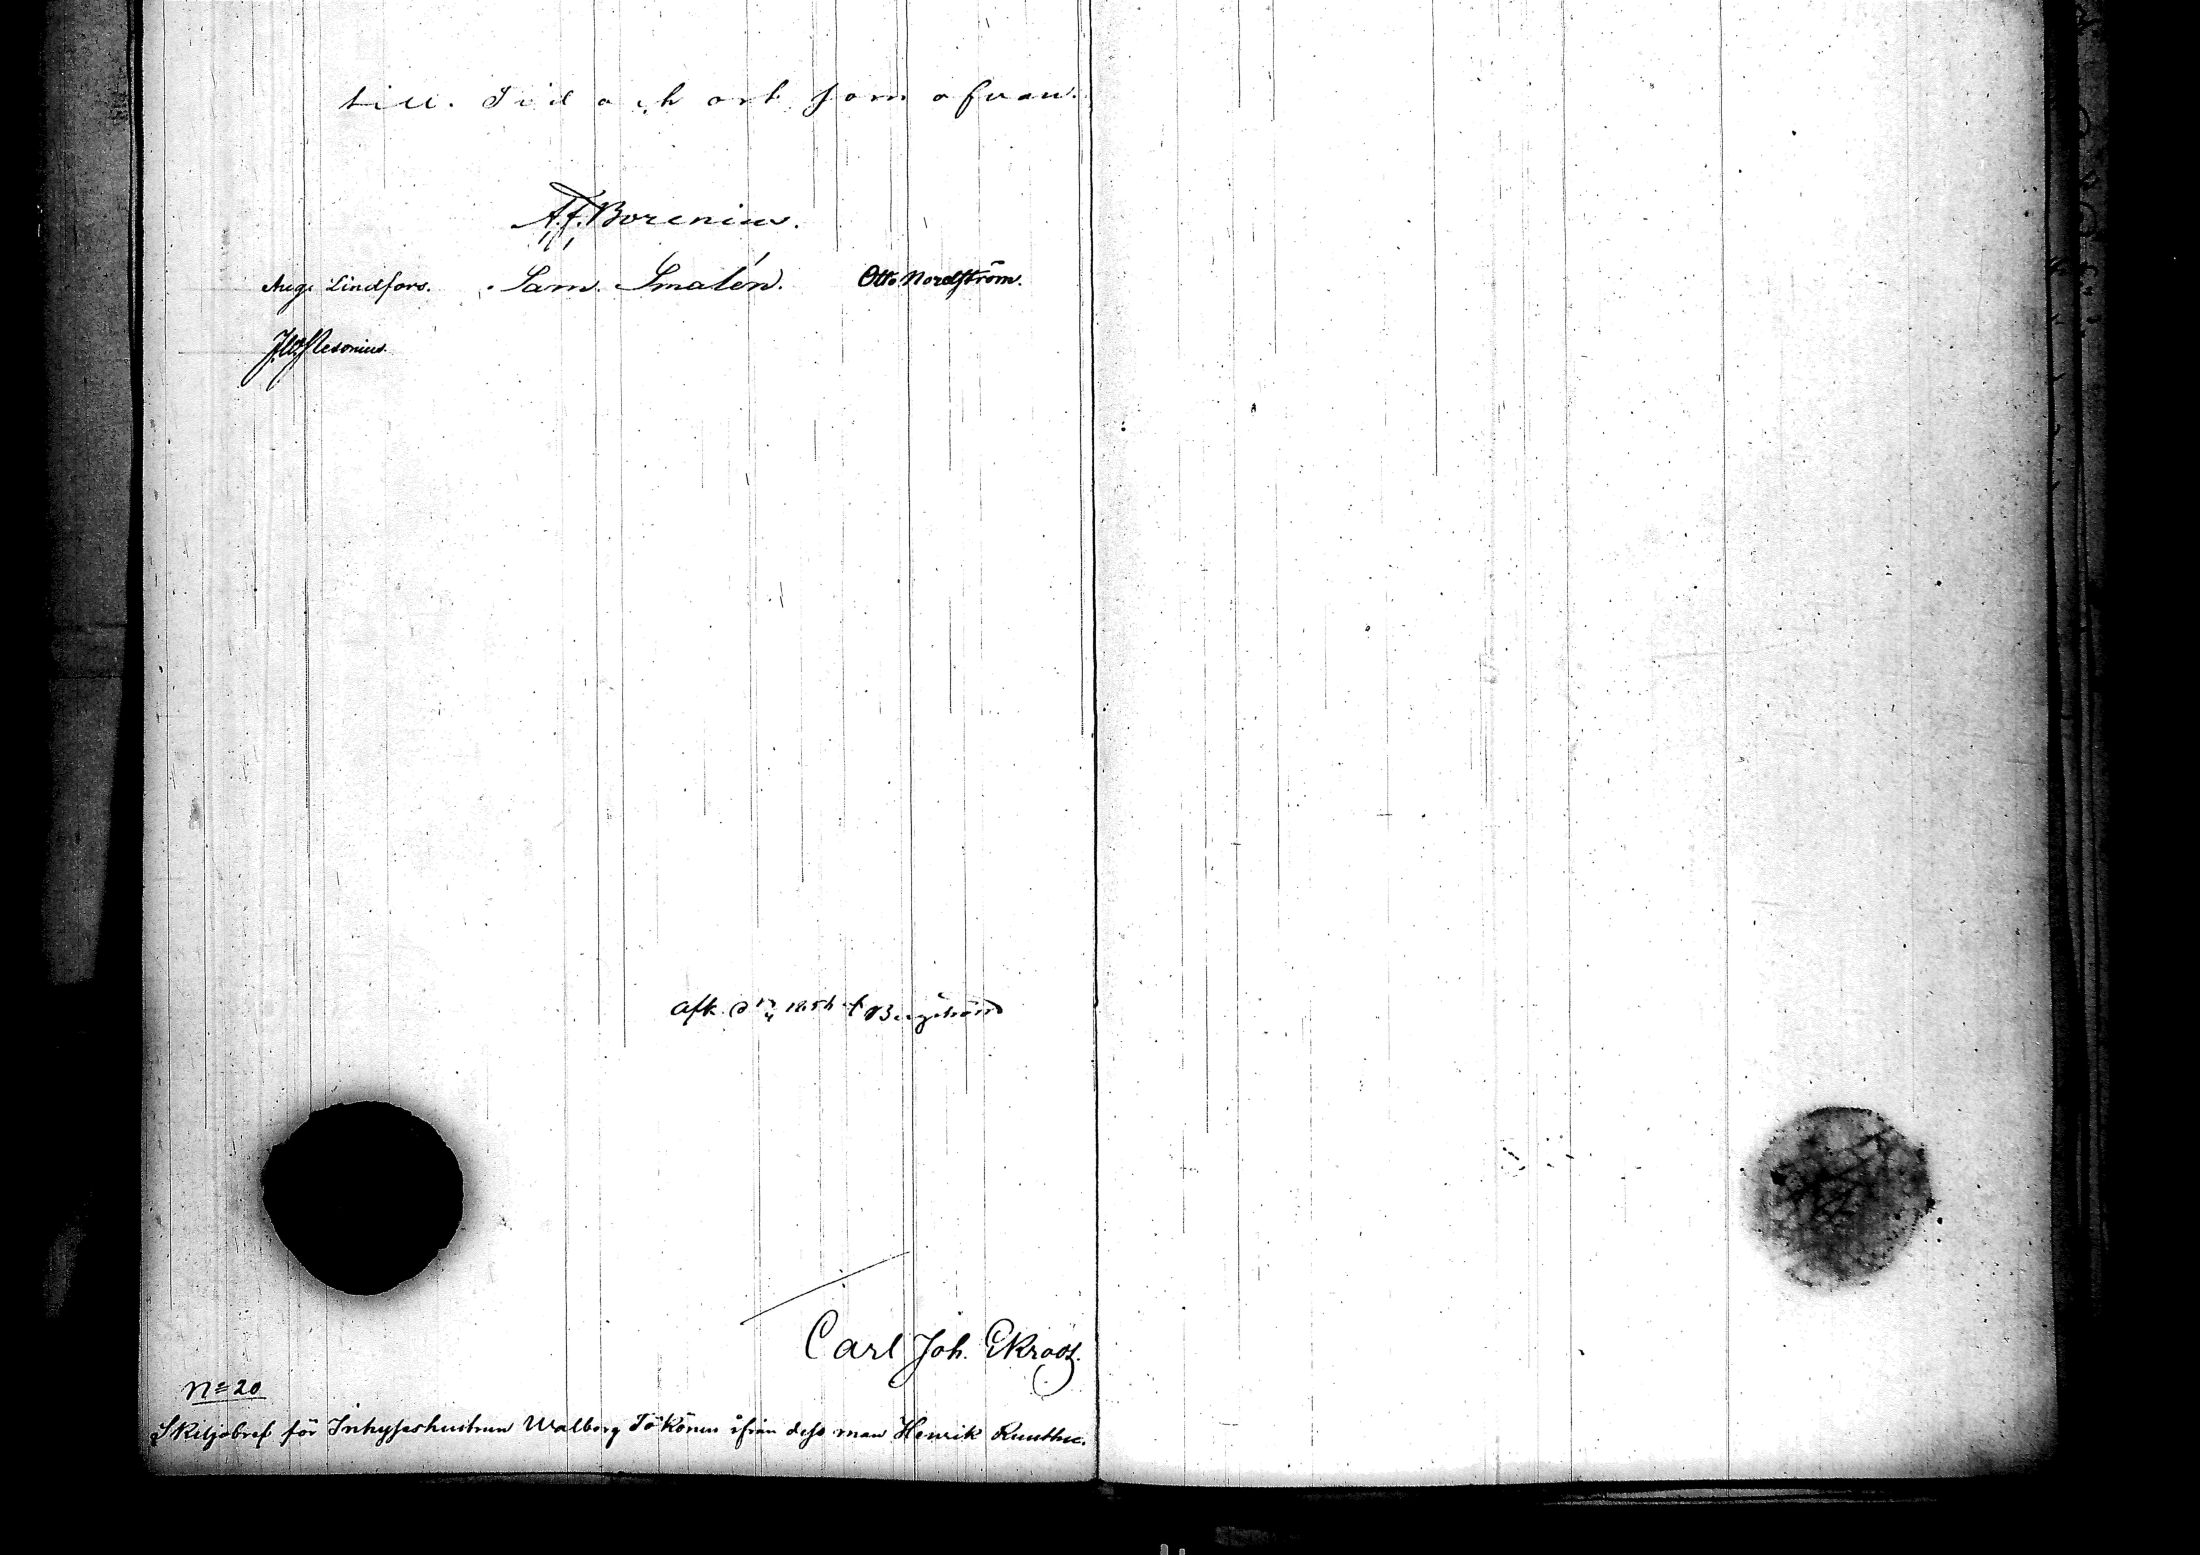 till. Tid och ort som ofvan.
A. F. Borenius.
Aug. Lindfors. Sam. Smalén. Otto Nordström.
Afk. d 17/4 1856 Bergström
Carl Joh. Ekroos.
No 20
Skiljobref för Inhyseshustrun Walborg Tökönen ifrån dess man Henrik Ruuthu.